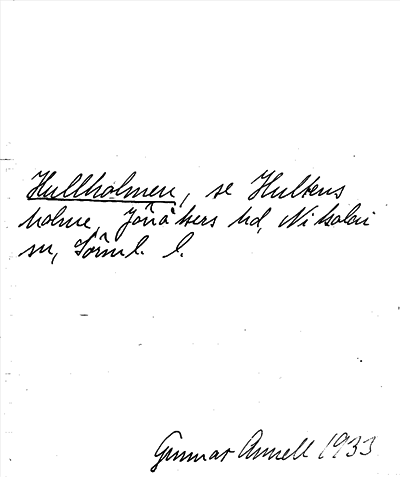 Hullholmen, se Hultens
holme, Jönåkers hd, Nikolai
sn, Sörml. l.
Gunnar Annell 1933